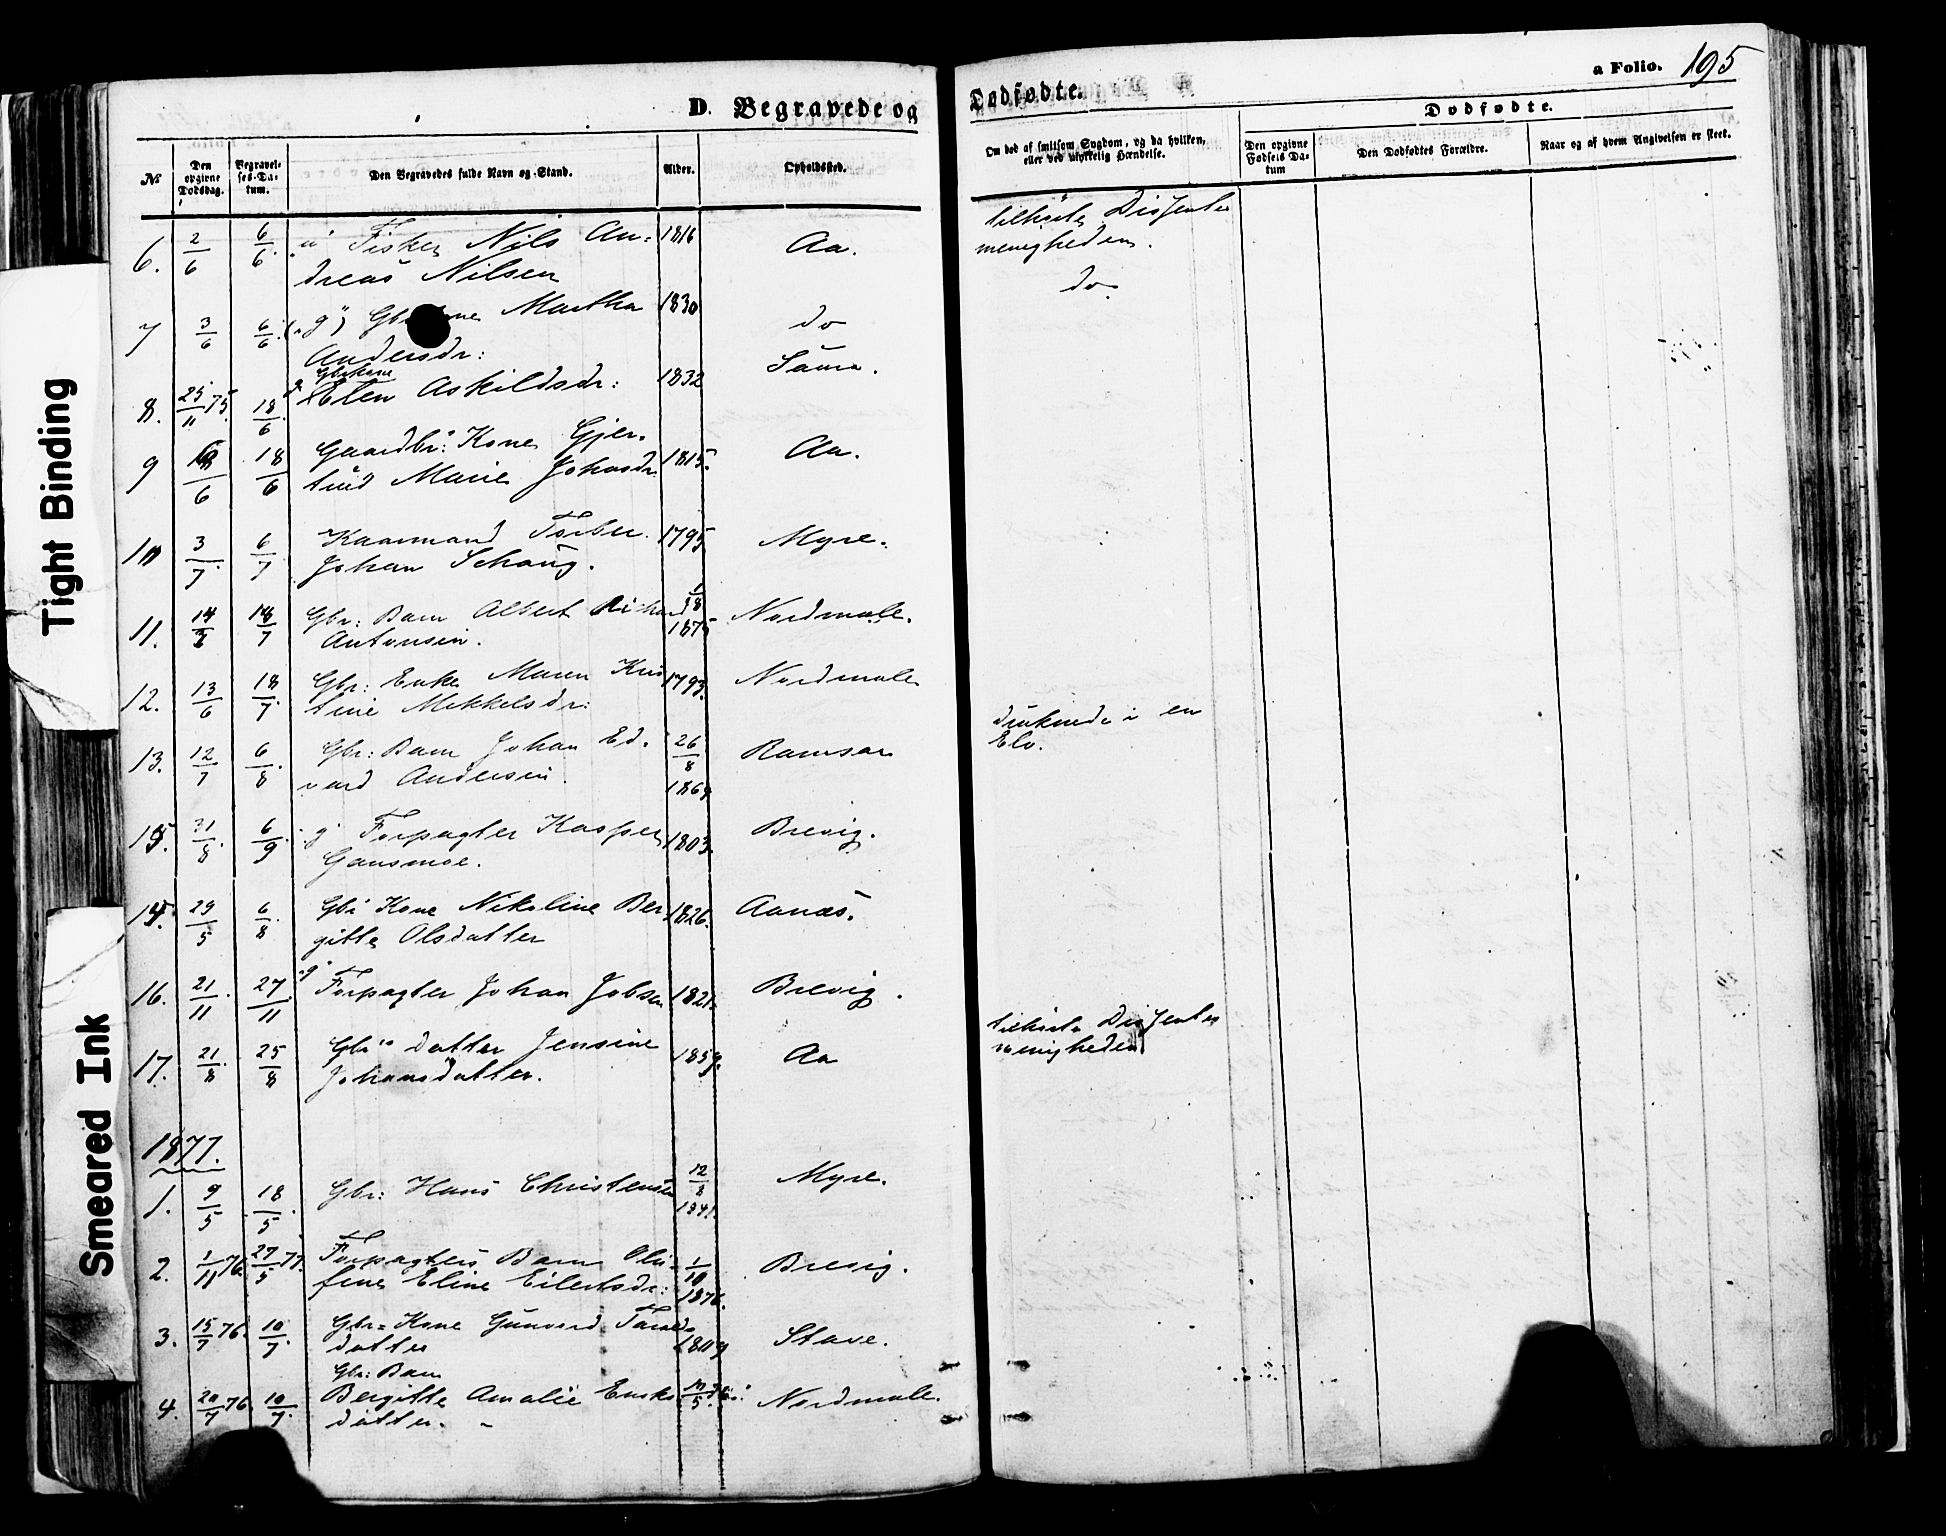 Tight Binding
Smeared Ink
D. Begravede og
Dødfødte.
a Folio. 195
Dødfødte.
№
Den opgivne Dødsdag.
Begravelses-Datum.
Den Begravedes fulde Navn og Stand.
Alder.
Opholdssted.
Om død af smitsom Sygdom, og da hvilken, eller ved ulykkelig Hændelse.
Den opgivne Fødsels Datum
Den Dødfødtes Forældre.
Naar og af hvem Angivelsen er skeet.
6. 2/6 6/6. Fisker Nils An= 1816 Aa. tilhørte Dissenter
dreas Nilsen menigheden.
7 3/6 6/6. ("g") Martha 1830 do do
Andersdr:
Gbrkone
8. 25/11 75. 18/6. Elen Askildsdr: 1832 Saura.
9 /6 18/6 Gaardbr: Kone Gjer= 1815. Aa.
trud Marie Johnsdr
10 3/7. 6/7 Kaarmand Torber 1795 Myre.
Johan Schaug.
11. 14/7 18/7 Gbr: Barn Albert Richard /8 1875 Nordmæle.
Antonsen.
12. 13/6 18/7. Gbr: Enke Maren Kris 1793. Nordmæle
tine Mikkelsdr:
13. 12/7 6/8. Gbr: Barn Johan Ed= 26/8 1869 Ramsaa druknede i en
vard Andersen. Elv.
15. 31/8. 6/9. "g" Forpagter Kasper 1803. Brevig.
Gansmoe.
14. 29/5 6/8. Gbr Kone Nikoline Ber 1826. Aanæs.
gitte Olsdatter
16. 21/11. 27/11. "g" Forpagter Johan Jobsen 1821. Brevig.
17. 21/8 25/8 Gbr" datter Jensine 1859. Aa tilhørte Dissenter
Johansdatter. menigheden
1877.
1. 9/5 18/5. Gbr: Hans Christensen 12/8 1841. Myre.
2. 1/11 76. 27/5 77. Forpagters Barn Oli= 1/10 1876. Brevig.
fine Eline Eilertsdr:
3. 15/7 76. 10/7. Gbr= Kone Gunvord 1809 Stave.
datter
Gbr: Barn
4. 20/7 76 10/7. Bergitte Amalie Enoks /5. Nordmæle.
datter.